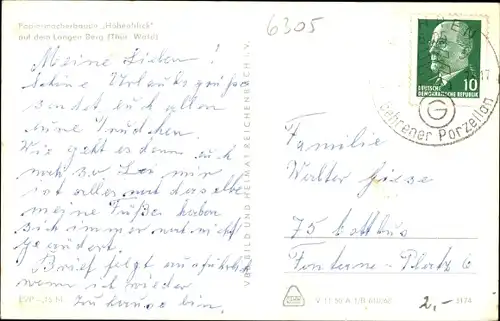 Papiermacherbaude „Höhenblick"
auf dem Langen Berg (Thür. Wald)
6305
Meine Lieben!
Schöne Urlaubsgrüße
sendet euch allen
eure Trudchen.
Wie geht es denn euch
noch so. Bei mir
ist alles noch dasselbe
meine Füße haben
sich immer noch nicht
geändert.
Brief folgt ausführlich
wenn ich wieder
zu Hause bin.
EVP
VEB BILD UND HEIMAT REICHENBACH I. V.
DEUTSCHE
DEMOKRATISCHE REPUBLIK
10
17
G
Gehrener Porzellan
Familie
Walter Giese
75 Cottbus
Fontane-Platz 6
2,-